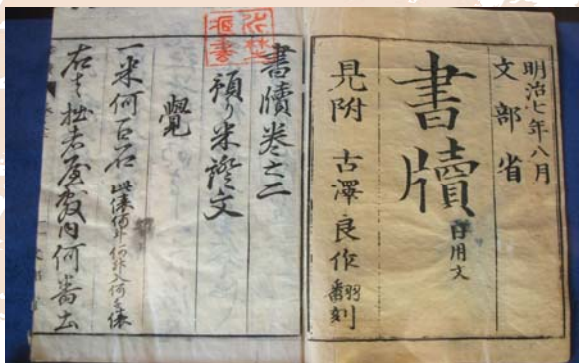 明治七年八月
文部省
書牘 日用文
見附 古澤良作 翻刻
書牘巻之二
預り米證文
覺
一米何百石
右者拙者屋敷内何番土